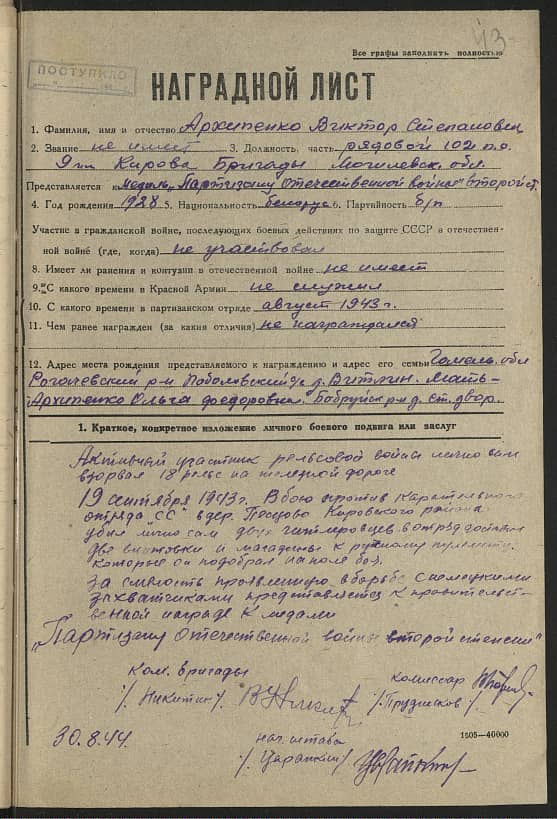 43
Все графы заполнить полностью
ПОСТУПИЛО
НАГРАДНОЙ ЛИСТ
1. Фамилия, имя и отчество Архипенко Виктор Степанович
2. Звание не имеет 3. Должность, часть рядовой 102 п.о.
Кирова Бригады Могилевск. обл.
Представляется медаль „Партизану отечественной войны" второй ст.
4. Год рождения 1928 5. Национальность белорус 6. Партийность б/п
Участие в гражданской войне, последующих боевых действиях по защите СССР в отечествен-
ной войне (где, когда) не участвовал
8. Имеет ли ранения и контузии в отечественной войне не имеет
9. С какого времени в Красной Армии не служил
10. С какого времени в партизанском отряде август 1943 г.
11. Чем ранее награжден (за какия отличия) не награждался
12. Адрес места рождения представляемого к награждению и адрес его семьи Гомель. обл
Рогачевский р-н с/с д. Мать-
Архипенко Ольга Федоровна. Бобруйск р-н д. Ст. двор.
1. Краткое, конкретное изложение личного боевого подвига или заслуг
Активный участник рельсовой войны лично сам
взорвал 18 рельс на железной дороге
19 сентября 1943 г. В бою против карательного
отряда „СС" в дер. Кировского района
убил лично сам двух гитлеровцев в отряд доставил
две винтовки и магазины к ручному пулемету
которые он подобрал на поле боя.
За смелость проявленную в борьбе с немецкими
захватчиками представляется к правительст-
венной награде к медали
„Партизану отечественной войны второй степени"
Ком. бригады
комиссар
/. Никитин/
/. Прудников/
30.8.44.
нач. штаба
1605—40000